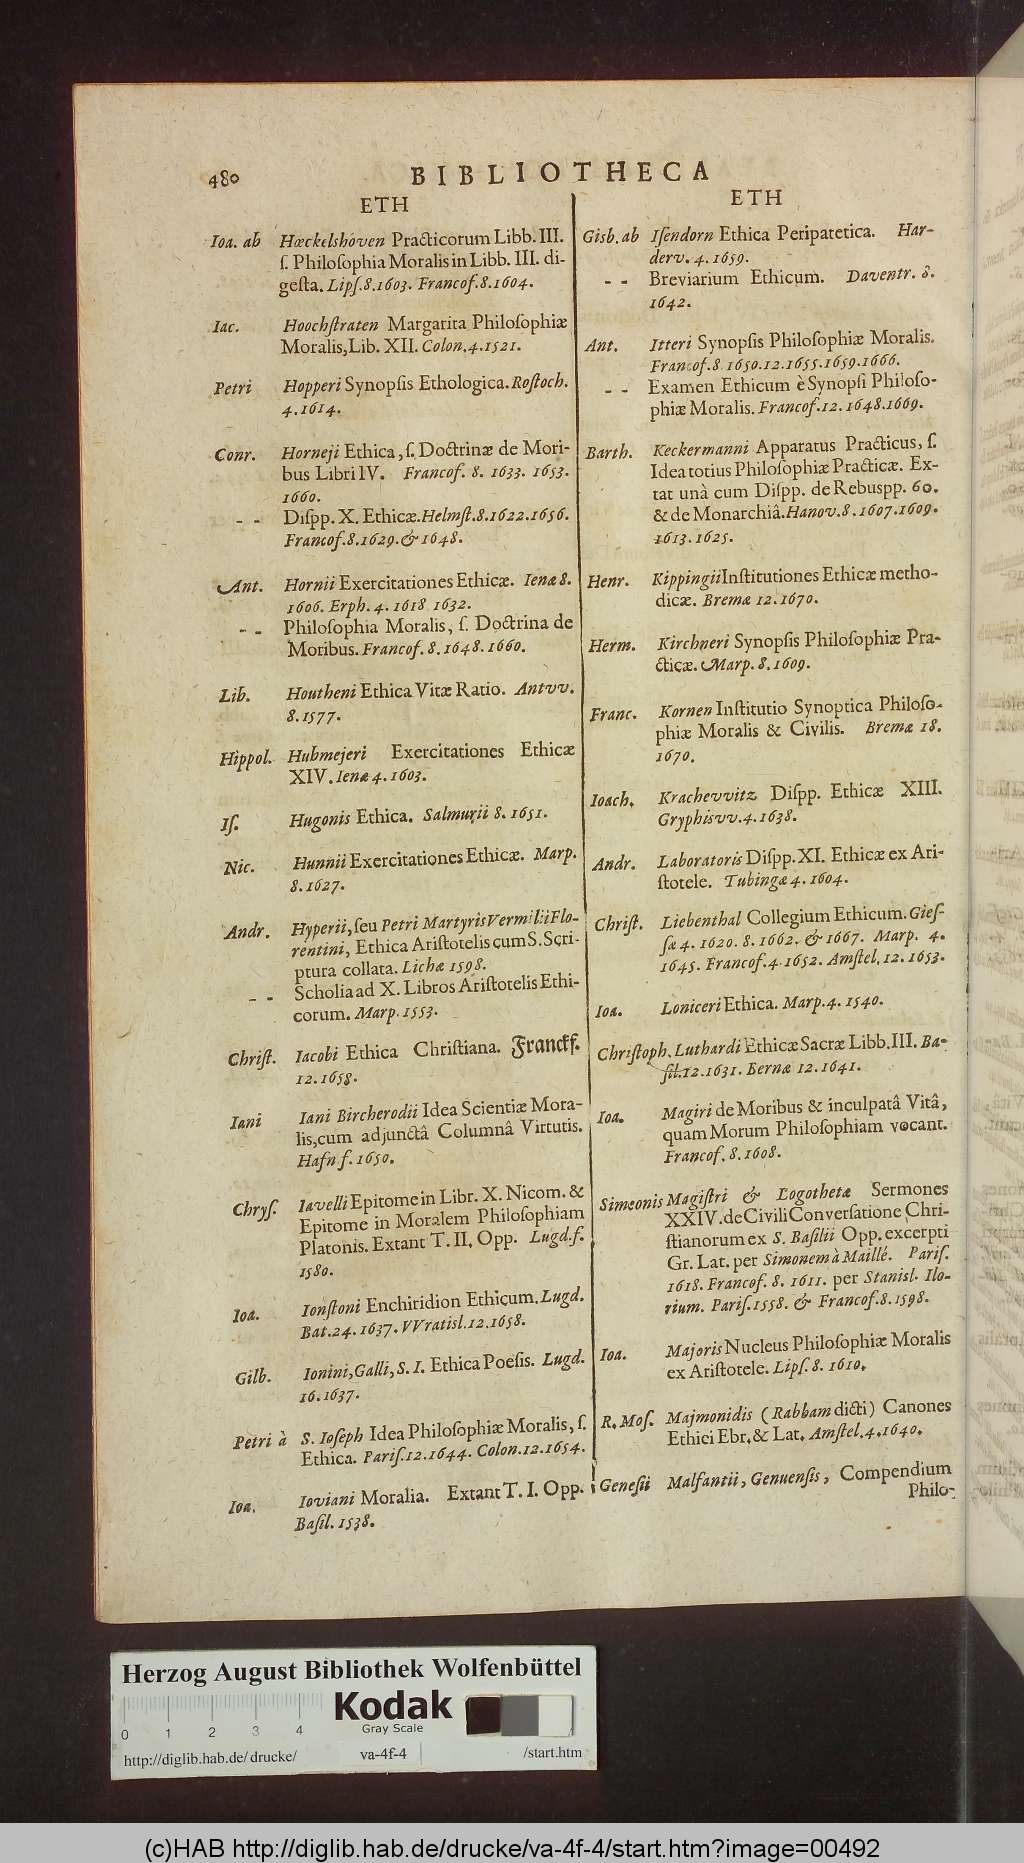 480
BIBLIOTHECA
ETH
Ioa. ab Hœckelshoven Practicorum Libb. III.
ſ. Philoſophia Moralis in Libb. III. di-
geſta. Lipſ. 8. 1603. Francof. 8. 1604.
Iac. Hoochſtraten Margarita Philoſophiæ
Moralis, Lib. XII. Colon. 4. 1521.
Petri Hopperi Synopſis Ethologica. Roſtoch.
4. 1614.
Conr. Horneji Ethica, ſ. Doctrinæ de Mori-
bus Libri IV. Francof. 8. 1633. 1653.
1660.
- - Diſpp. X. Ethicæ. Helmſt. 8. 1622. 1656.
Francof. 8. 1629. & 1648.
Ant. Hornii Exercitationes Ethicæ. Ienæ 8.
1606. Erph. 4. 1618 1632.
- - Philoſophia Moralis, ſ. Doctrina de
Moribus. Francof. 8. 1648. 1660.
Lib. Houtheni Ethica Vitæ Ratio. Antvv.
8. 1577.
Hippol. Hubmejeri Exercitationes Ethicæ
XIV. Ienæ 4. 1603.
Iſ. Hugonis Ethica. Salmurii 8. 1651.
Nic. Hunnii Exercitationes Ethicæ. Marp.
8. 1627.
Andr. Hyperii, ſeu Petri Martyris Vermilii Flo-
rentini, Ethica Ariſtotelis cum S. Scri-
ptura collata. Lichæ 1598.
- - Scholia ad X. Libros Ariſtotelis Ethi-
corum. Marp. 1553.
Chriſt. Iacobi Ethica Chriſtiana. Franckf.
12. 1658.
Iani Iani Bircherodii Idea Scientiæ Mora-
lis, cum adjunctâ Columnâ Virtutis.
Hafn f. 1650.
Chryſ. Iavelli Epitome in Libr. X. Nicom. &
Epitome in Moralem Philoſophiam
Platonis. Extant T. II. Opp. Lugd. f.
1580.
Ioa. Ionſtoni Enchiridion Ethicum. Lugd.
Bat. 24. 1637. VVratisl. 12. 1658.
Gilb. Ionini, Galli, S. I. Ethica Poeſis. Lugd.
16. 1637.
Petri à S. Ioſeph Idea Philoſophiæ Moralis, ſ.
Ethica. Pariſ. 12. 1644. Colon. 12. 1654.
Ioa. Ioviani Moralia. Extant T. I. Opp.
Baſil. 1538.
ETH
Gisb. ab Iſendorn Ethica Peripatetica. Har-
derv. 4. 1659.
- - Breviarium Ethicum. Daventr. 8.
1642.
Ant. Itteri Synopſis Philoſophiæ Moralis.
Francof. 8 1650. 12. 1655. 1659. 1666.
- - Examen Ethicum è Synopſi Philoſo-
phiæ Moralis. Francof. 12. 1648. 1669.
Barth. Keckermanni Apparatus Practicus, ſ.
Idea totius Philoſophiæ Practicæ. Ex-
tat unà cum Diſpp. de Rebuspp. 60.
& de Monarchiâ. Hanov. 8. 1607. 1609.
1613. 1625.
Henr. Kippingii Inſtitutiones Ethicæ metho-
dicæ. Bremæ 12. 1670.
Herm. Kirchneri Synopſis Philoſophiæ Pra-
cticæ. Marp. 8. 1609.
Franc. Kornen Inſtitutio Synoptica Philoſo-
phiæ Moralis & Civilis. Bremæ 18.
1670.
Ioach. Krachevvitz Diſpp. Ethicæ XIII.
Gryphisvv. 4. 1638.
Andr. Laboratoris Diſpp. XI. Ethicæ ex Ari-
ſtotele. Tubingæ 4. 1604.
Chriſt. Liebenthal Collegium Ethicum. Gieſ-
ſæ 4. 1620. 8. 1662. & 1667. Marp. 4.
1645. Francof. 4. 1652. Amſtel. 12. 1653.
Ioa. Loniceri Ethica. Marp. 4. 1540.
Chriſtoph. Luthardi Ethicæ Sacræ Libb. III. Ba-
ſil. 12. 1631. Bernæ 12. 1641.
Ioa. Magiri de Moribus & inculpatâ Vitâ,
quam Morum Philoſophiam vocant.
Francof. 8. 1608.
Simeonis Magiſtri & Logothetæ Sermones
XXIV. de Civili Converſatione Chri-
ſtianorum ex S. Baſilii Opp. excerpti
Gr. Lat. per Simonem à Maillé. Pariſ.
1618. Francof. 8. 1611. per Stanisl. Ilo-
rium. Pariſ. 1558. & Francof. 8. 1598.
Ioa. Majoris Nucleus Philoſophiæ Moralis
ex Ariſtotele. Lipſ. 8. 1610.
R. Moſ. Majmonidis (Rabbam dicti) Canones
Ethici Ebr. & Lat. Amſtel. 4. 1640.
Geneſii Malfantii, Genuenſis, Compendium
Philo-
Herzog August Bibliothek Wolfenbüttel
0 1 2 3 4
Kodak
Gray Scale
http://diglib.hab.de/drucke/ va-4f-4 /start.htm
(c)HAB http://diglib.hab.de/drucke/va-4f-4/start.htm?image=00492